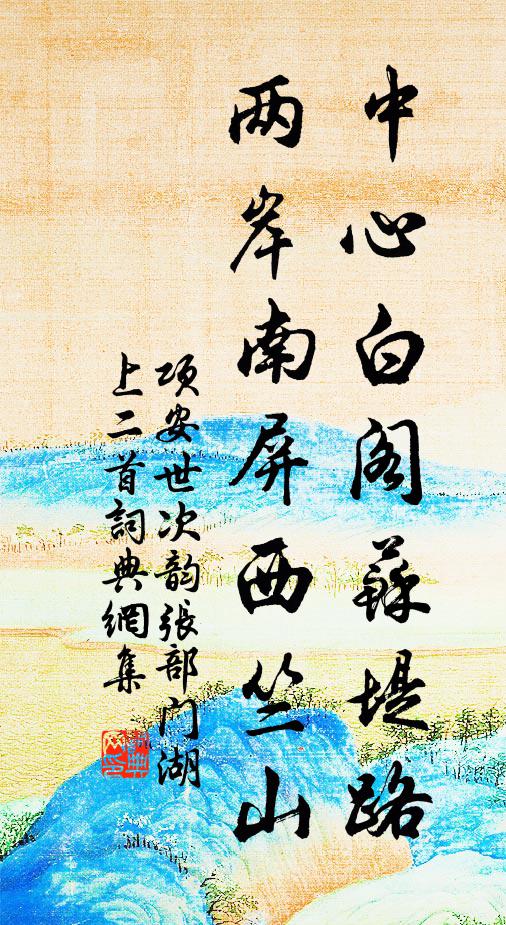 中心白阁蘇堤路
两岸南屏西竺山
项安世次韵張部门湖
上二首詞典網集